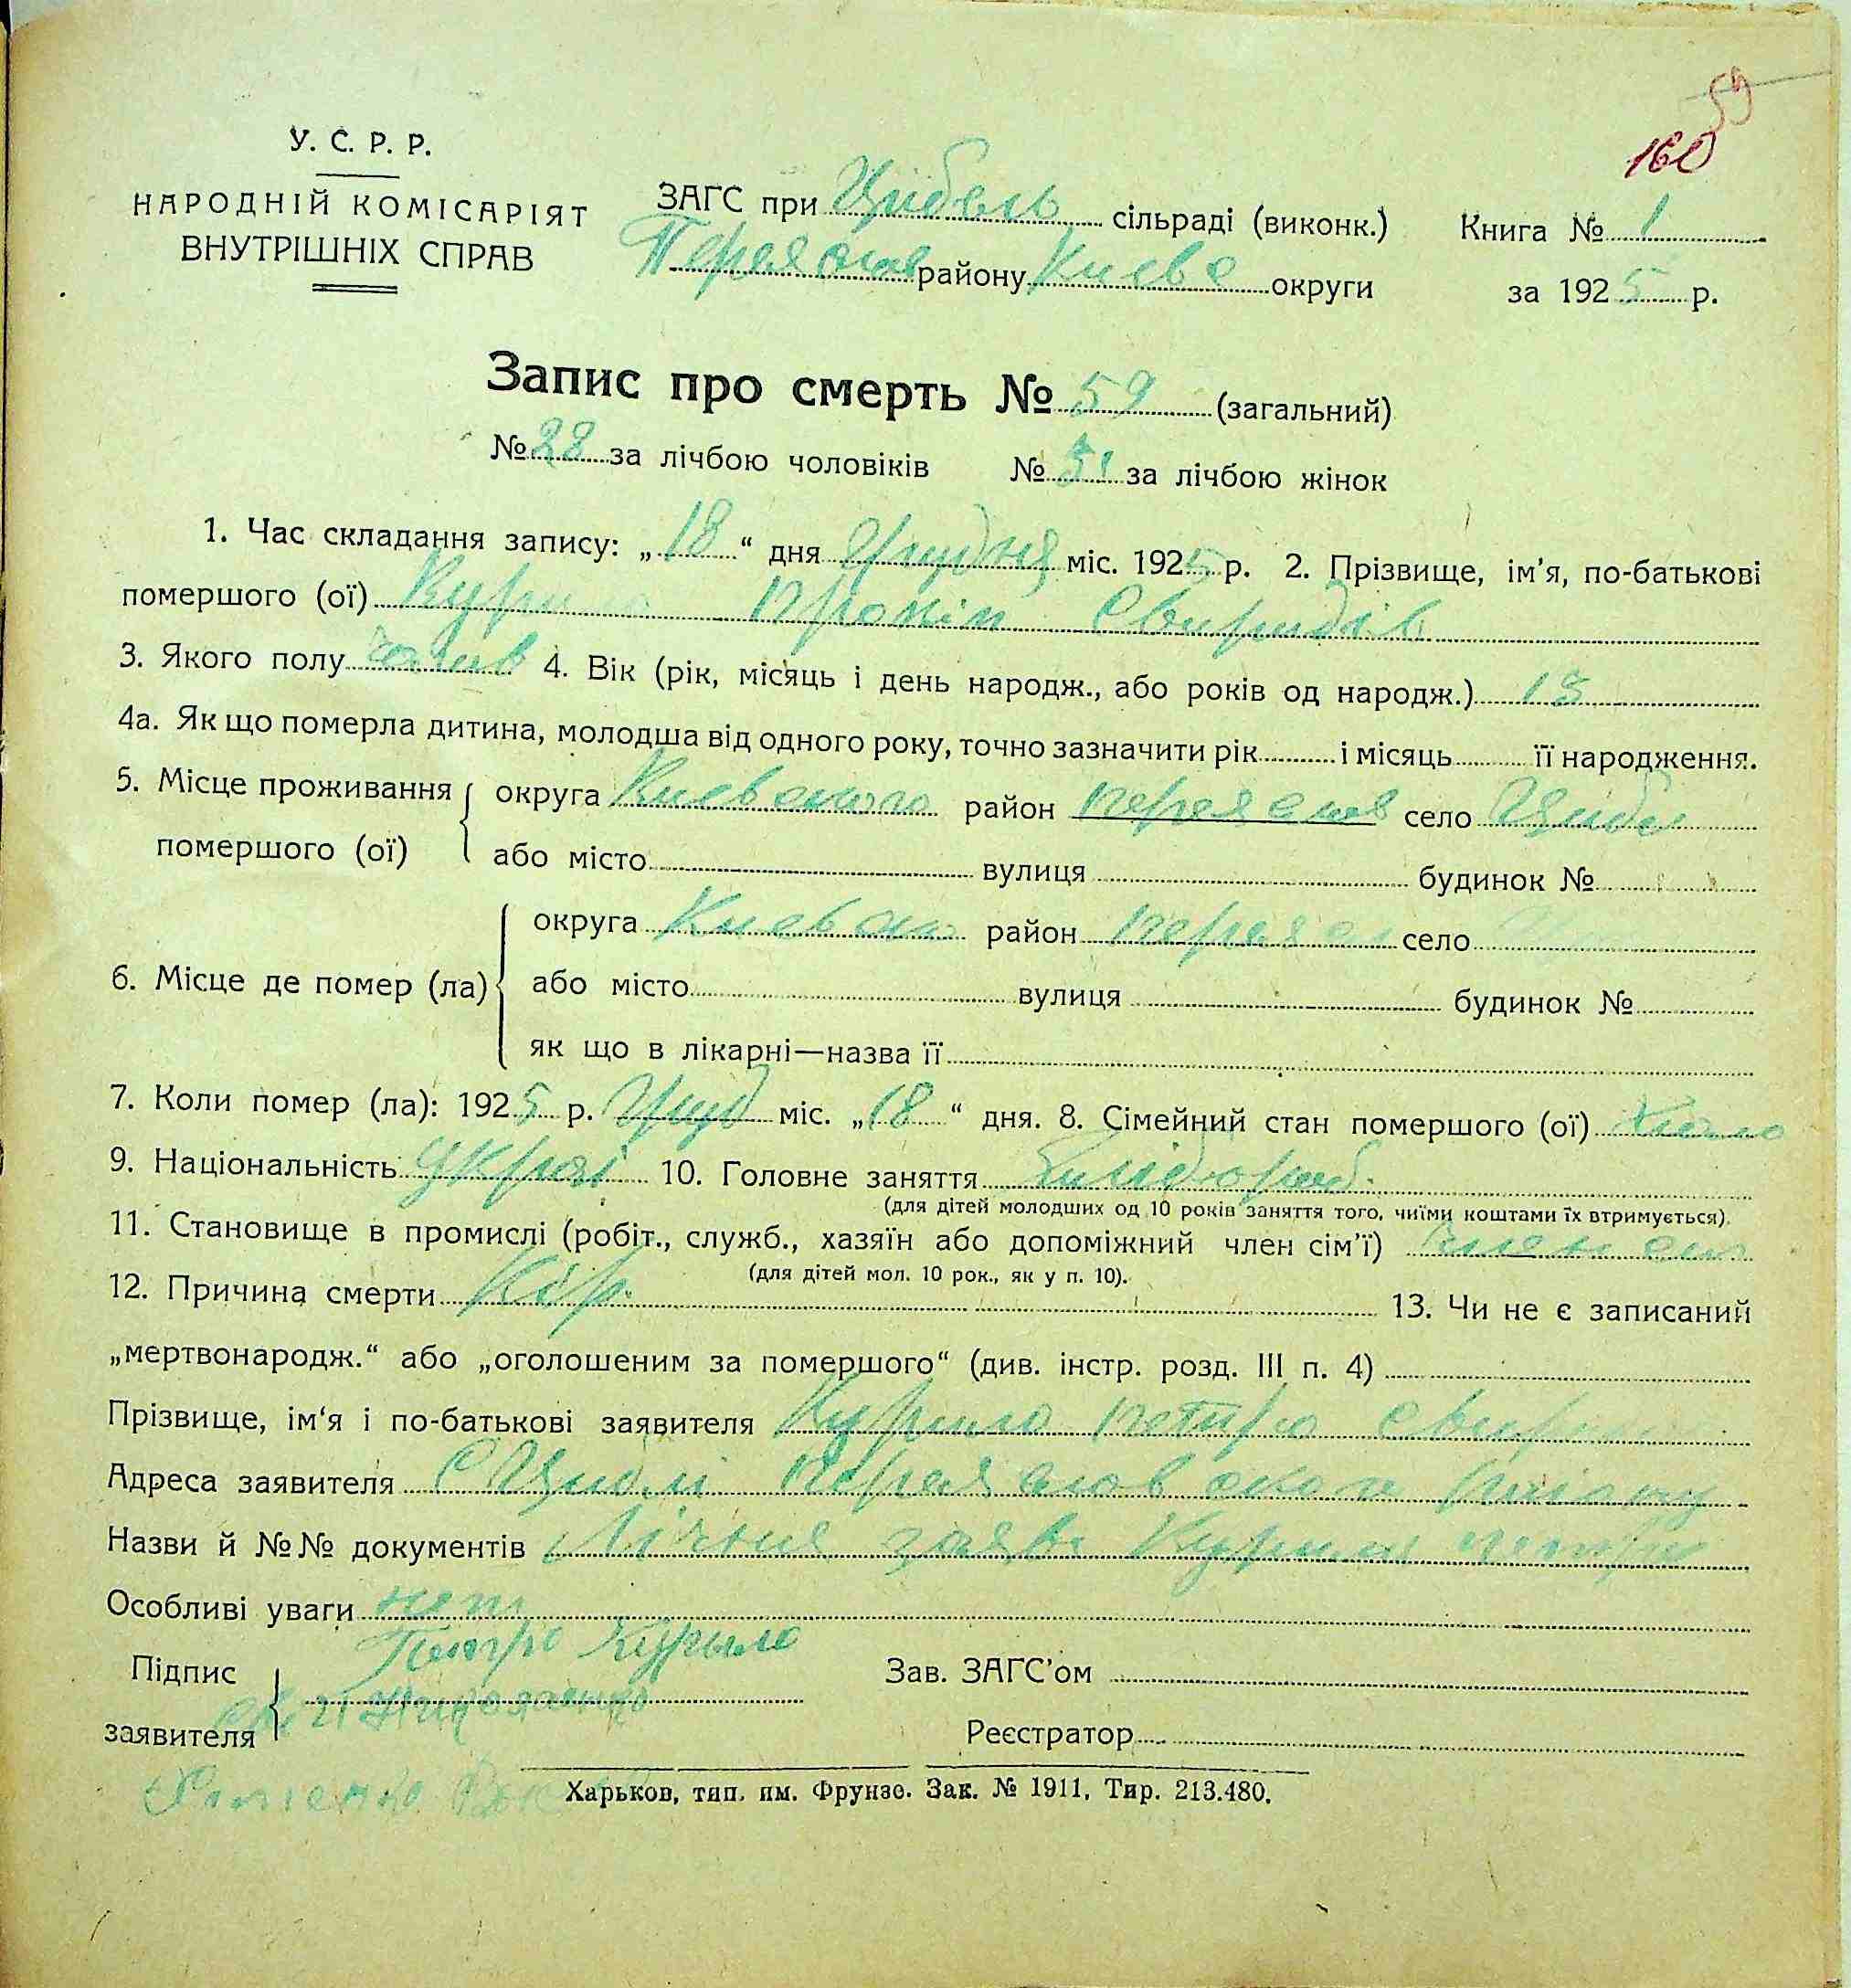 59
160
У. С. Р. Р.
НАРОДНІЙ КОМІСАРІЯТ
ВНУТРІШНІХ СПРАВ
ЗАГС при Цибель сільраді (виконк.)
Переяслав району Києвс округи
Книга № 1
за 1925 р.
Запис про смерть № 59 (загальний)
№ 28 за лічбою чоловіків № 31 за лічбою жінок
1. Час складання запису: „18“ дня Грудня міс. 1925 р. 2. Прізвище, ім’я, по-батькові
помершого (ої) Курило Прокіп Свиридів
3. Якого полу 4. Вік (рік, місяць і день народж., або років од народж.) 13
4а. Як що померла дитина, молодша від одного року, точно зазначити рік і місяць її народження.
5. Місце проживання округа Києвського район переяслов село Циблі
помершого (ої) або місто вулиця будинок №
6. Місце де помер (ла) округа Києвськ район переясл село
або місто вулиця будинок №
як що в лікарні—назва її
7. Коли помер (ла): 1925 р. Груд міс. „18“ дня. 8. Сімейний стан помершого (ої)
9. Національність Украї 10. Головне заняття хлібороб.
(для дітей молодших од 10 років заняття того, чиїми коштами їх втримується).
11. Становище в промислі (робіт., служб., хазяїн або допоміжний член сім’ї) член сім
(для дітей мол. 10 рок., як у п. 10).
12. Причина смерти Кір. 13. Чи не є записаний
„мертвонародж.“ або „оголошеним за помершого“ (див. інстр. розд. III п. 4)
Прізвище, ім‘я і по-батькові заявителя Курило петро Свир
Адреса заявителя С Циблі Переяславского району
Назви й №№ документів Лічная заява Курила петра
Особливі уваги нет
Підпис заявителя Петро Курыло
Зав. ЗАГС’ом
Реєстратор
Харьков, тип. им. Фрунзе. Зак. № 1911, Тир. 213.480.